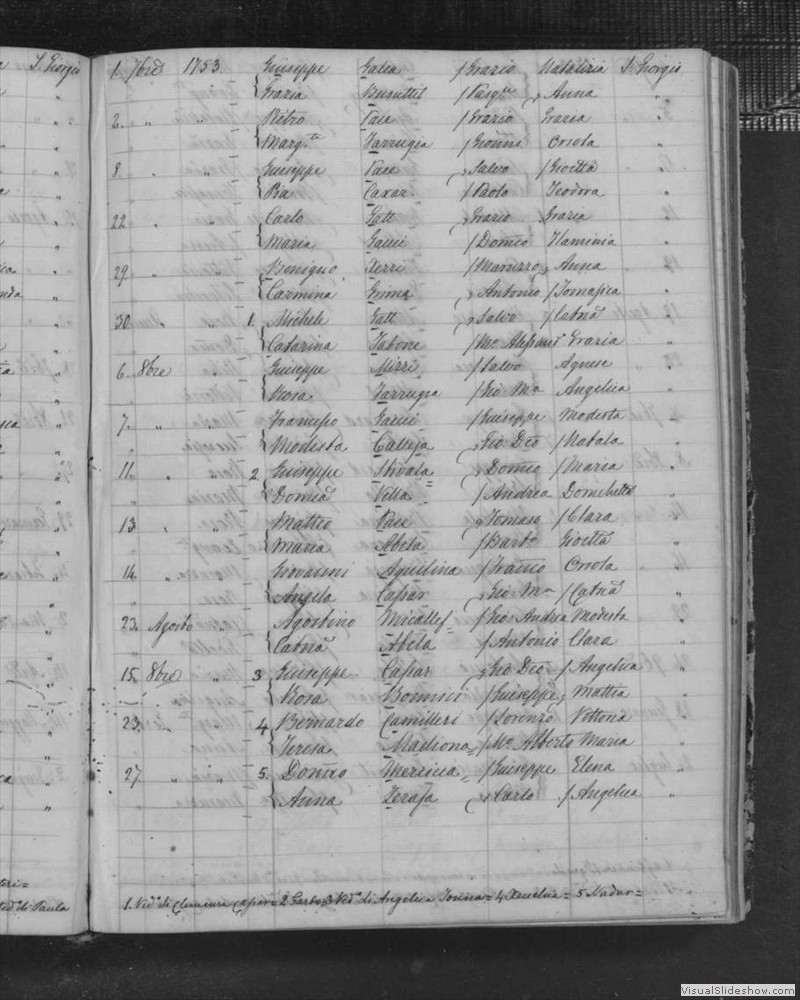 S. Giorgio
1. 7bre 1753. Giuseppe Galea / Grazio Natalizia S. Giorgio
Grazia Busuttil / Pasqle Anna "
2. " " Pietro Pace / Grazio Grazia "
Margta Farrugia / Gionni Orsola "
8. " " Giuseppe Pace / Salvo / Gioetta "
Pia Caxar / Paolo Teodora "
22. " " Carlo Gatt Grazio Grazia "
Maria Gauci / Domco Flaminia "
29. " " Benigno Xerri / Maurizio Anna "
Carmina Grima Antonio / Tomasica "
30. " " 1. Michele Gatt Salvo / Catnā "
Catarina Tabone / Mo Grazia "
6. 8bre " Giuseppe Mizzi / Salvo Agnese "
Rosa Farrugia / Gio Ma Angelica "
7. " " Gauci / Giuseppe Modesta "
Modesta Calleja Gio Deo / Natala "
11. " " 2 Giuseppe Domco / Maria "
Domca Vella / Andrea Domchetta "
13. " " Matteo Pace Tomaso / Clara "
Maria Abela / Barto Gioetta "
14. " " Giovanni Aquilina / Franco Orsola "
Angela Cassar Gio Ma / Catnā "
23. Agosto " Agostino Micallef / Gio Andrea Modesta "
Catnā Abela / Antonio Clara "
15. 8bre " 3 Giuseppe Cassar Gio Deo / Angelica "
Rosa Bonnici / Giuseppe Mattia "
23. " " 4 Bernardo Camilleri / Lorenzo Vittoria "
Teresa Madiona / Mo Alberto Maria "
27 " " 5. Domco Mercieca / Giuseppe Elena "
Anna Zerafa Carlo / Angelica "
1. Veda di Clemenza Cassar = 2 Garbo 3 Veda di Angelica = 4 Xeuchia = 5 Nadur =
Veda di Paula
VisualSlideshow.com